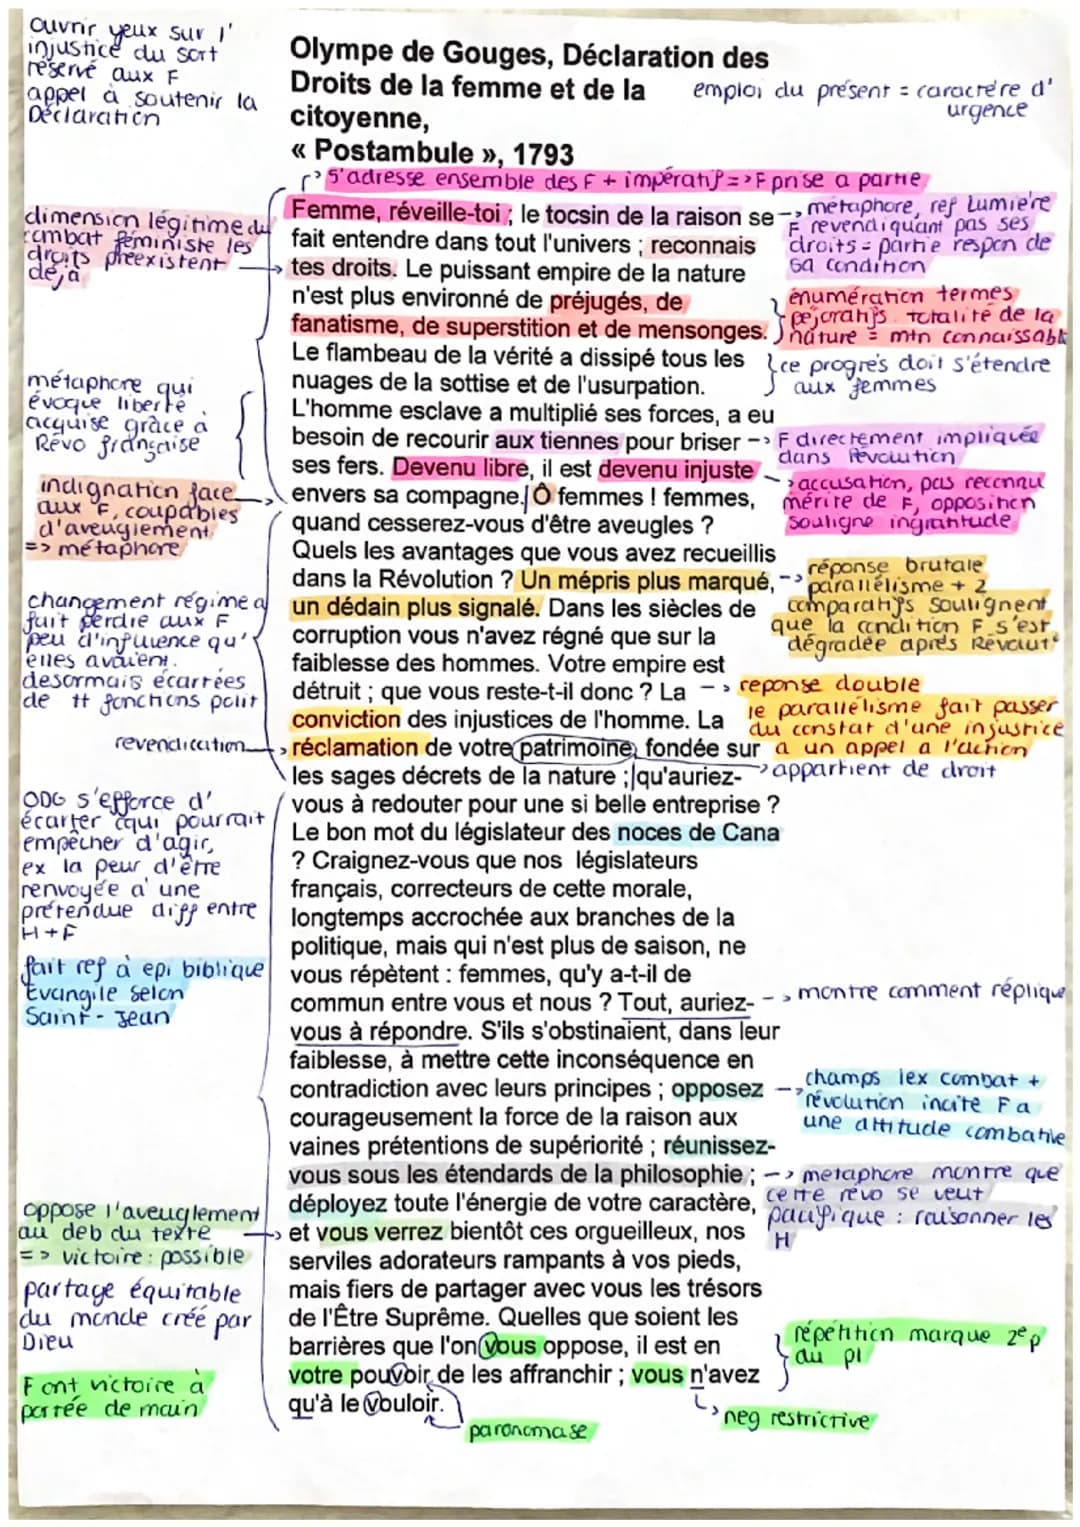 ouvrir yeux sur l'
injustice du sort
réservé aux F
appel à soutenir la
Déclaration
Olympe de Gouges, Déclaration des
Droits de la femme et de la
citoyenne,
« Postambule », 1793
emploi du présent = caractère d'
urgence
s'adresse ensemble des F + impératif => F prise a partie
dimension légitime du
combat féministe les
droits préexistent
déjà
métaphore qui
évoque liberté
acquise grâce a
Révo française
indignation face
aux F, coupables
d'aveuglement
=> métaphore
changement régime a
fait perdre aux F
peu d'influence qu'
elles avaient.
desormais écartées
de tt fonctions polit
revendication
ODG s'efforce d'
écarter cqui pourrait
empêcher d'agir,
ex la peur d'être
renvoyée a une
prétendue diff entre
H + F
fait ref à epi biblique
Evangile selon
Saint-Jean
oppose l'aveuglement
au deb du texte
=> victoire : possible
partage équitable
du monde créé par
Dieu
F ont victoire à
portée de main
Femme, réveille-toi ; le tocsin de la raison se
fait entendre dans tout l'univers ; reconnais
tes droits. Le puissant empire de la nature
n'est plus environné de préjugés, de
fanatisme, de superstition et de mensonges.
Le flambeau de la vérité a dissipé tous les
nuages de la sottise et de l'usurpation.
L'homme esclave a multiplié ses forces, a eu
besoin de recourir aux tiennes pour briser
ses fers. Devenu libre, il est devenu injuste
envers sa compagne. Ô femmes ! femmes,
quand cesserez-vous d'être aveugles ?
Quels les avantages que vous avez recueillis
dans la Révolution ? Un mépris plus marqué,
un dédain plus signalé. Dans les siècles de
corruption vous n'avez régné que sur la
faiblesse des hommes. Votre empire est
détruit ; que vous reste-t-il donc ? La
conviction des injustices de l'homme. La
réclamation de votre patrimoine, fondée sur
les sages décrets de la nature ; qu'auriez-
vous à redouter pour une si belle entreprise ?
Le bon mot du législateur des noces de Cana
? Craignez-vous que nos législateurs
français, correcteurs de cette morale,
longtemps accrochée aux branches de la
politique, mais qui n'est plus de saison, ne
vous répètent : femmes, qu'y a-t-il de
commun entre vous et nous ? Tout, auriez-
vous à répondre. S'ils s'obstinaient, dans leur
faiblesse, à mettre cette inconséquence en
contradiction avec leurs principes ; opposez
courageusement la force de la raison aux
vaines prétentions de supériorité ; réunissez-
vous sous les étendards de la philosophie ;
déployez toute l'énergie de votre caractère,
et vous verrez bientôt ces orgueilleux, nos
serviles adorateurs rampants à vos pieds,
mais fiers de partager avec vous les trésors
de l'Être Suprême. Quelles que soient les
barrières que l'on vous oppose, il est en
votre pouvoir de les affranchir ; vous n'avez
qu'à le vouloir.
paronomase
métaphore, ref Lumière
F revendiquant pas ses
droits = partie respon de
sa condition
énumération termes
péjoratifs. totalité de la
nature = mtn connaissable
ce progrès doit s'étendre
aux femmes
F directement impliquée
dans Révolution
accusation, pas reconnu
mérite de F, opposition
souligne ingratitude
réponse brutale
parallélisme + 2
comparatifs soulignent
que la condition F s'est
dégradée après Révolut°
reponse double
le parallélisme fait passer
du constat d'une injustice
a un appel a l'action
appartient de droit
montre comment réplique
champs lex combat +
révolution incite F a
une attitude combative
metaphore montre que
cette révo se veut
pacifique : raisonner les
H
répétition marque 2e p
du pl
neg restrictive